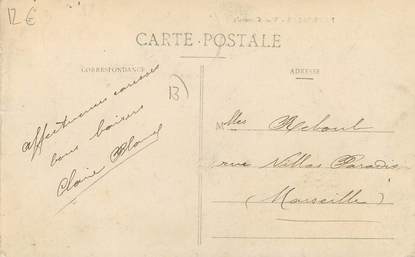 12 €
CARTE POSTALE
CORRESPONDANCE
ADRESSE
13
Affectueuses caresses
bons baisers
Claire
Mlles Reboul
rue Villas Paradis
(Marseille)